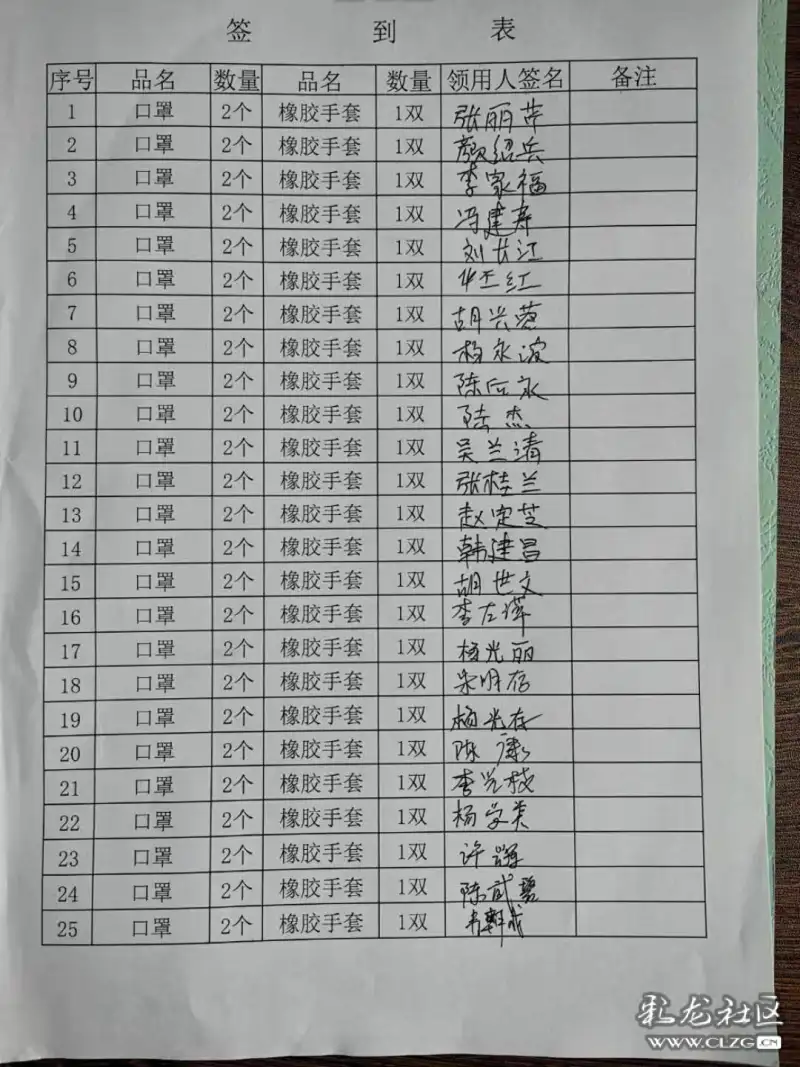 签 到 表
序号 品名 数量 品名 数量 领用人签名 备注
1 口罩 2个 橡胶手套 1双 张丽芹
2 口罩 2个 橡胶手套 1双 颜绍兵
3 口罩 2个 橡胶手套 1双 李家福
4 口罩 2个 橡胶手套 1双 冯建寿
5 口罩 2个 橡胶手套 1双 刘长江
6 口罩 2个 橡胶手套 1双
7 口罩 2个 橡胶手套 1双 胡兴蓉
8 口罩 2个 橡胶手套 1双 杨永波
9 口罩 2个 橡胶手套 1双 陈应永
10 口罩 2个 橡胶手套 1双 陆杰
11 口罩 2个 橡胶手套 1双 吴兰清
12 口罩 2个 橡胶手套 1双 张桂兰
13 口罩 2个 橡胶手套 1双 赵定芝
14 口罩 2个 橡胶手套 1双 韩建昌
15 口罩 2个 橡胶手套 1双 胡世文
16 口罩 2个 橡胶手套 1双
17 口罩 2个 橡胶手套 1双 杨光丽
18 口罩 2个 橡胶手套 1双 宋明存
19 口罩 2个 橡胶手套 1双 杨光存
20 口罩 2个 橡胶手套 1双 陈康
21 口罩 2个 橡胶手套 1双 李光枝
22 口罩 2个 橡胶手套 1双 杨学英
23 口罩 2个 橡胶手套 1双
24 口罩 2个 橡胶手套 1双
25 口罩 2个 橡胶手套 1双
彩龙社区
WWW.CLZG.CN